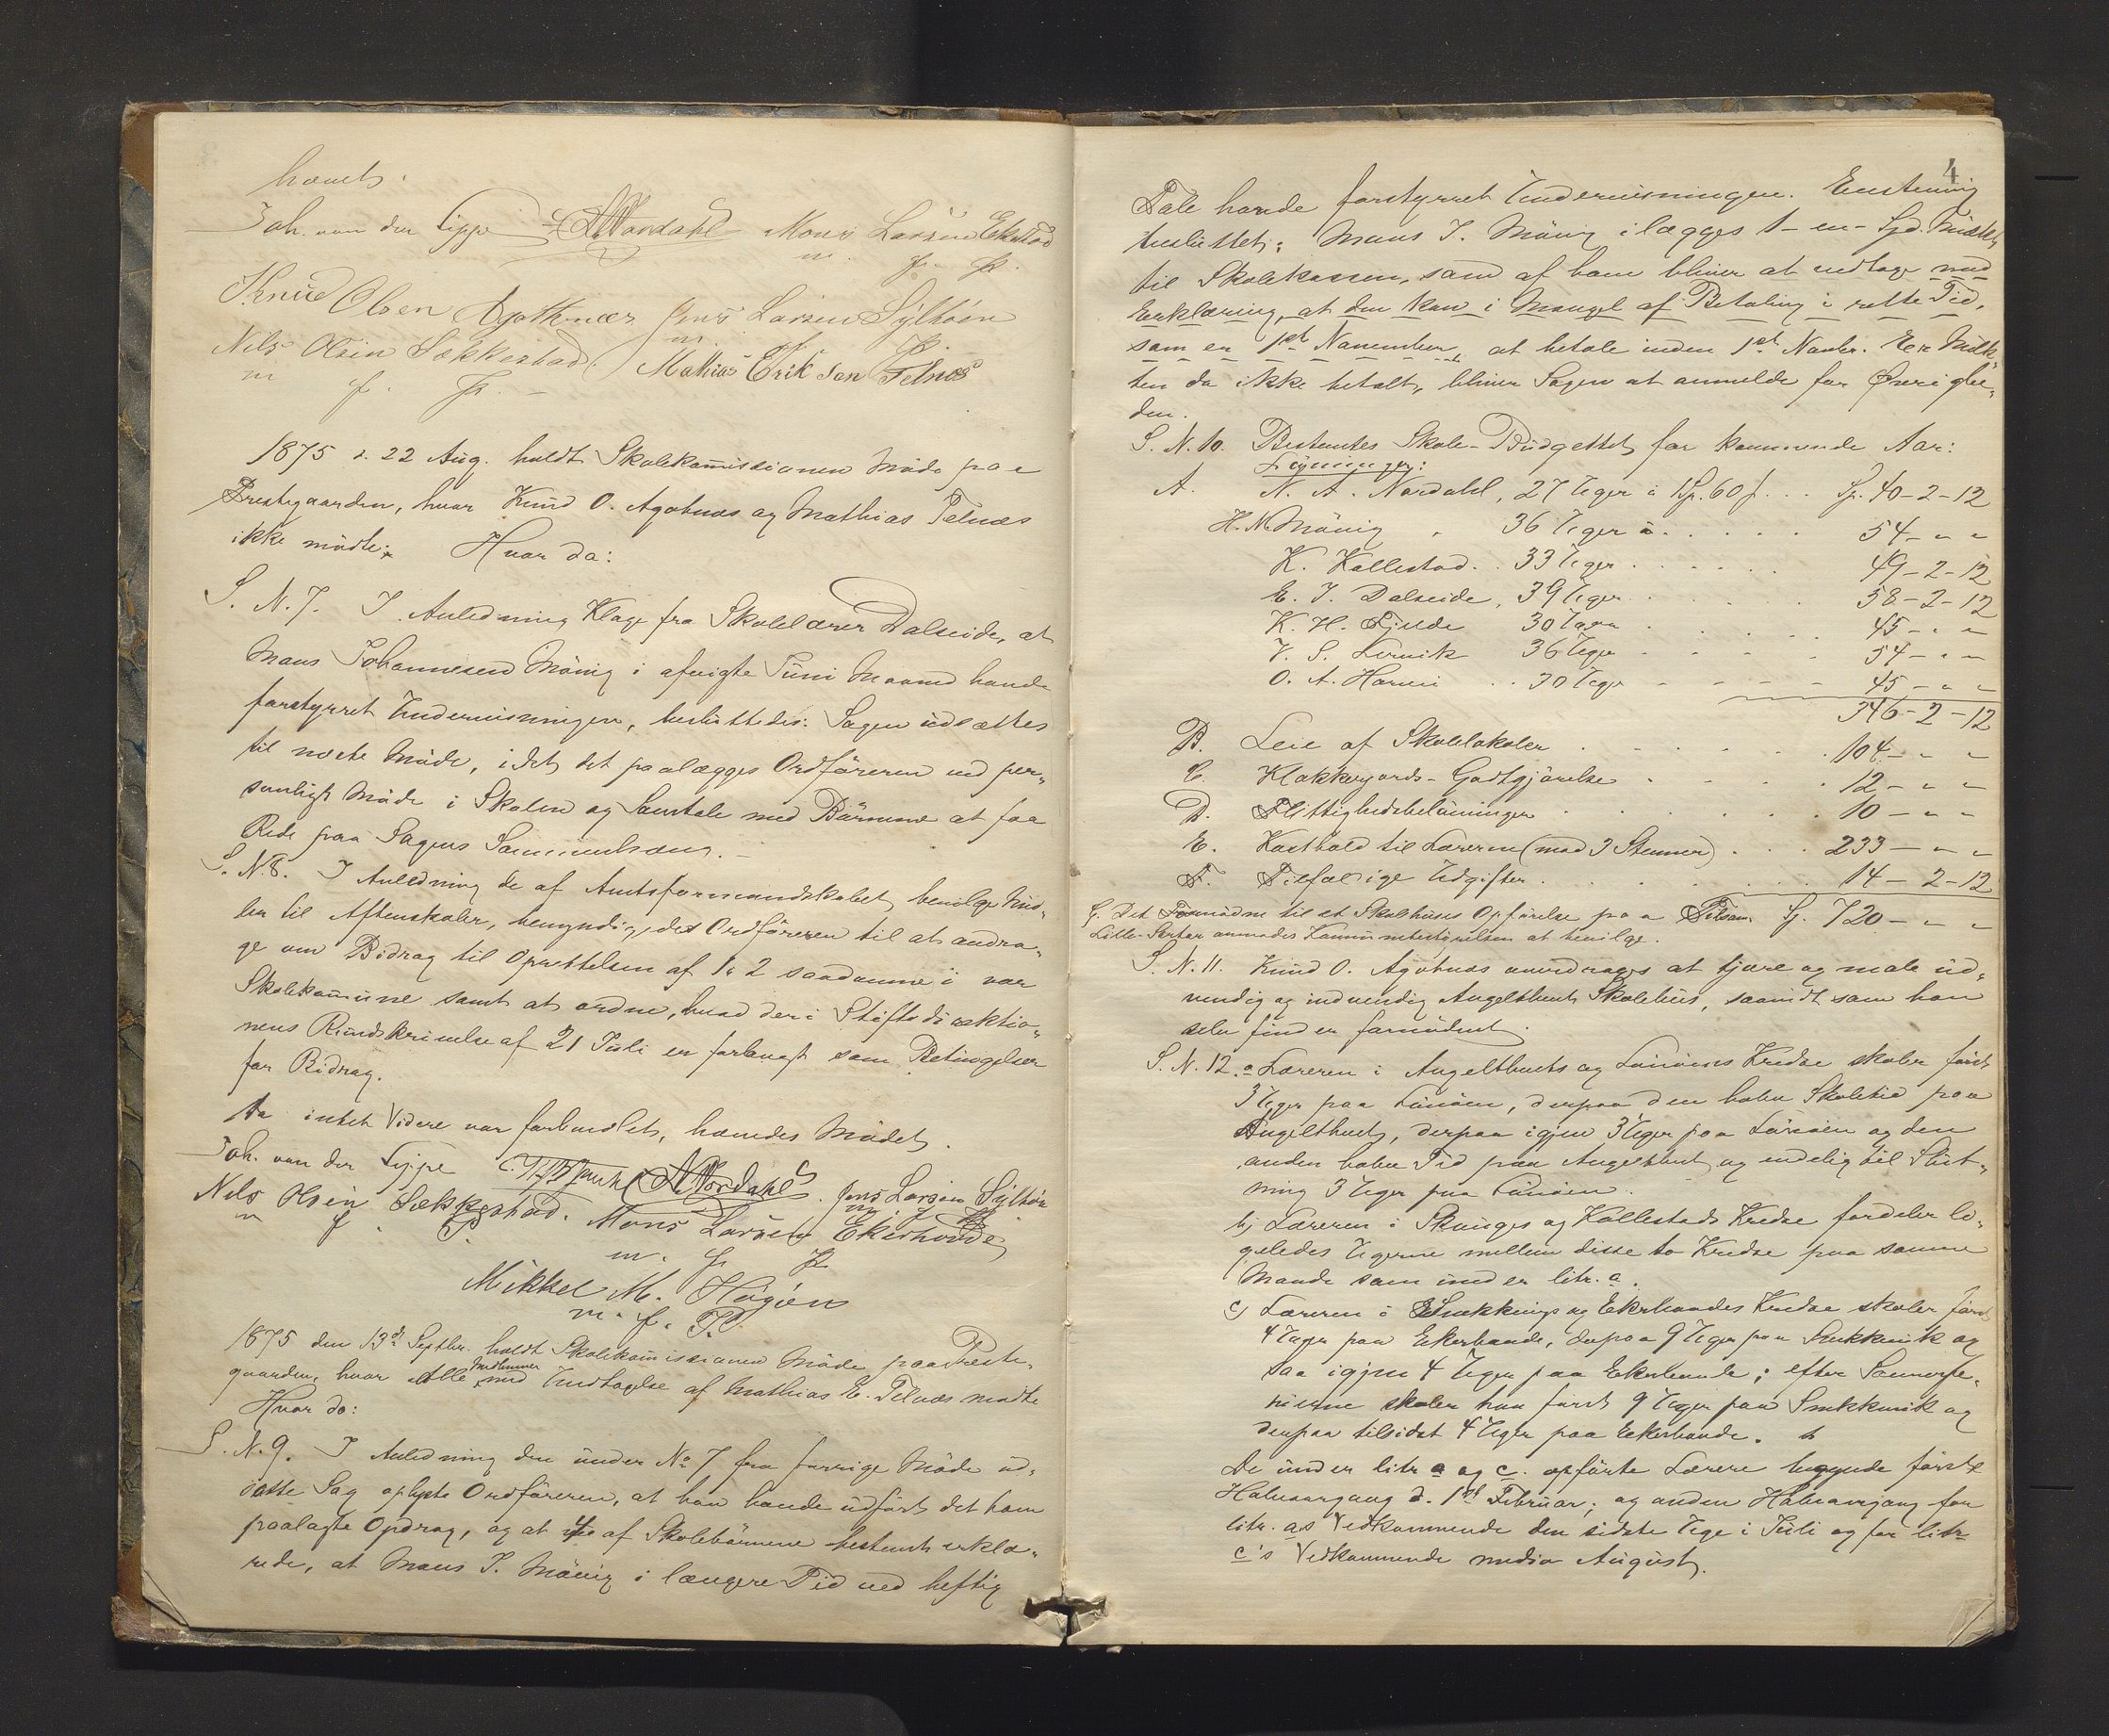 hævet.
Joh. von der Lippe N. A. Nordahl Mons Larsen Ekerhovd
m. f. P.
Knud Olsen Agothnæs Jens Larsen Sÿltöen
m. f. P.
Nils Olsen Sækkestad. Mathias Erik sen Telnæs
m f. P. -
1875 d. 22 Aug. holdt Skolekommissionen Möde paa
Prestegaarden, hvor Knud O. Agotnæs og Mathias Telnæs
ikke mödte. Hvor da:
S. N. 7. I Anledning Klage fra Skolelærer Dalseide, at
Mons Johannesen Mövig i afvigte Juni Maaned havde
forstyrret Undervisningen, besluttedes: Sagen udsættes
til næste Möde, idet det paalægges Ordföreren ved per-
sonligt Möde i Skolen og Samtale med Börnene at faa
Rede paa Sagens Sammenhæng. -
S. N. 8. I Anledning de af Amtsformandskabet bevilgede Mid-
ler til Aftenskoler, bemyndigedes Ordföreren til at andra-
ge om Bidrag til Oprettelsen af 1 à 2 saadanne i vor
Skolekommune samt at ordne, hvad der i Stiftsdirektio-
nens Rundskrivelse af 21 Juli er forlangt som Betingelser
for Bidrag.
Da intet Videre var forhandlet, hævedes Mödet.
Joh. von der Lippe N. A. Nordahl. Jens Larsen Sÿltöen
Nils Olsen Sækkestad. Mons Larsen Ekerhovde
m f. P. m. f. P.
Mikkel M. Hagöen
m. f. P.
1875 den 13de Septbr. holdt Skolekommissionen Möde paa Preste-
gaarden, hvor Alle Medlemmer med Undtagelse af Mathias E. Telnæs mödte
Hvor da:
S. N. 9. I Anledning den under No 7 fra forrige Möde ud-
satte Sag oplyste Ordföreren, at han havde udfört det ham
paalagte Opdrag, og at af Skolebörnene bestemt erklæ-
rede, at Mons J. Mövig i længere Tid ved heftig
4
Tale havde forstyrret Undervisningen. Enstemmig
besluttet: Mons J. Mövig ilægges 1 - en - Spd. Mulkt
til Skolekassen, som af ham bliver at vedtage med
Erklæring, at den kan i Mangel af Betaling i rette Tid,
som er 1st November, at betale inden 1st Novbr. Er Mulk-
ten da ikke betalt, bliver Sagen at anmelde for Övrighe-
den.
S. N. 10. Bestemtes Skole-Budgettet for kommende Aar:
Lönninger:
A. N. A. Nordahl, 27 Uger à 1 Sp. 60 s. . . Sp. 40 - 2 - 12
H. N. Mövig " 36 Uger à . . . . . 54 - " "
K. Kallestad. . 33 Uger . . . . . 49 - 2 - 12
E. J. Dalseide, 39 Uger . . . . . 58 - 2 - 12
K. H. Fjelde 30 Uger . . . . . 45 - " "
V. S. Lervik 36 Uger . . . . . 54 - " "
O. A. Hamre . . 30 Uger . . . . . 45 - " "
346 - 2 - 12
B. Leie af Skolelokaler . . . . . . 104 - " "
C. Klokkergaards-Godtgjörelse . . . . 12 - " "
D. Flittighedsbelönninger . . . . . . 10 - " "
E. Kosthold til Lærerne (mod 3 Stemmer) . . . 233 - " "
F. Tilfældige Udgifter . . . . . . 14 - 2 - 12
G. Det Fornödne til et Skolehuses Opförelse paa Tilsam. Sp. 720 - " "
Lille-Sartor anmodes Kommunebestyrelsen at bevilge.
S. N. 11. Knud O. Agotnæs anmodes at tjære og male ud-
vendig og indvendig Angeltveit Skolehus, saavidt som han
selv finder fornödent.
S. N. 12. a Læreren i Angeltveits og Lönöens Kredse skoler först
3 Uger paa Lönöen, derpaa den halve Skoletid paa
Angeltveit, derpaa igjen 3 Uger paa Lönöen og den
anden halve Tid paa Angeltveit og endelig til Slut-
ning 3 Uger paa Lönöen.
b) Læreren i Skauges og Kallestads Kredse fordeler li-
geledes Ugerne mellem disse to Kredse paa samme
Maade som under litr. a.
c) Læreren i Snekkevigs og Ekerhovdes Kredse skoler först
4 Uger paa Ekerhovde, derpaa 9 Uger paa Snekkevik og
saa igjen 4 Uger paa Ekerhovde; efter Sommerfe-
rierne skoler han först 9 Uger paa Snekkevik og
derpaa tilsidst 4 Uger paa Ekerhovde.
De under litr a og c. opförte Lærere begynde förste
Halvaargang d. 1st Februar; og anden Halvaargang for
litr. a's Vedkommende den sidste Uge i Juli og for litr
c's Vedkommende medio August.